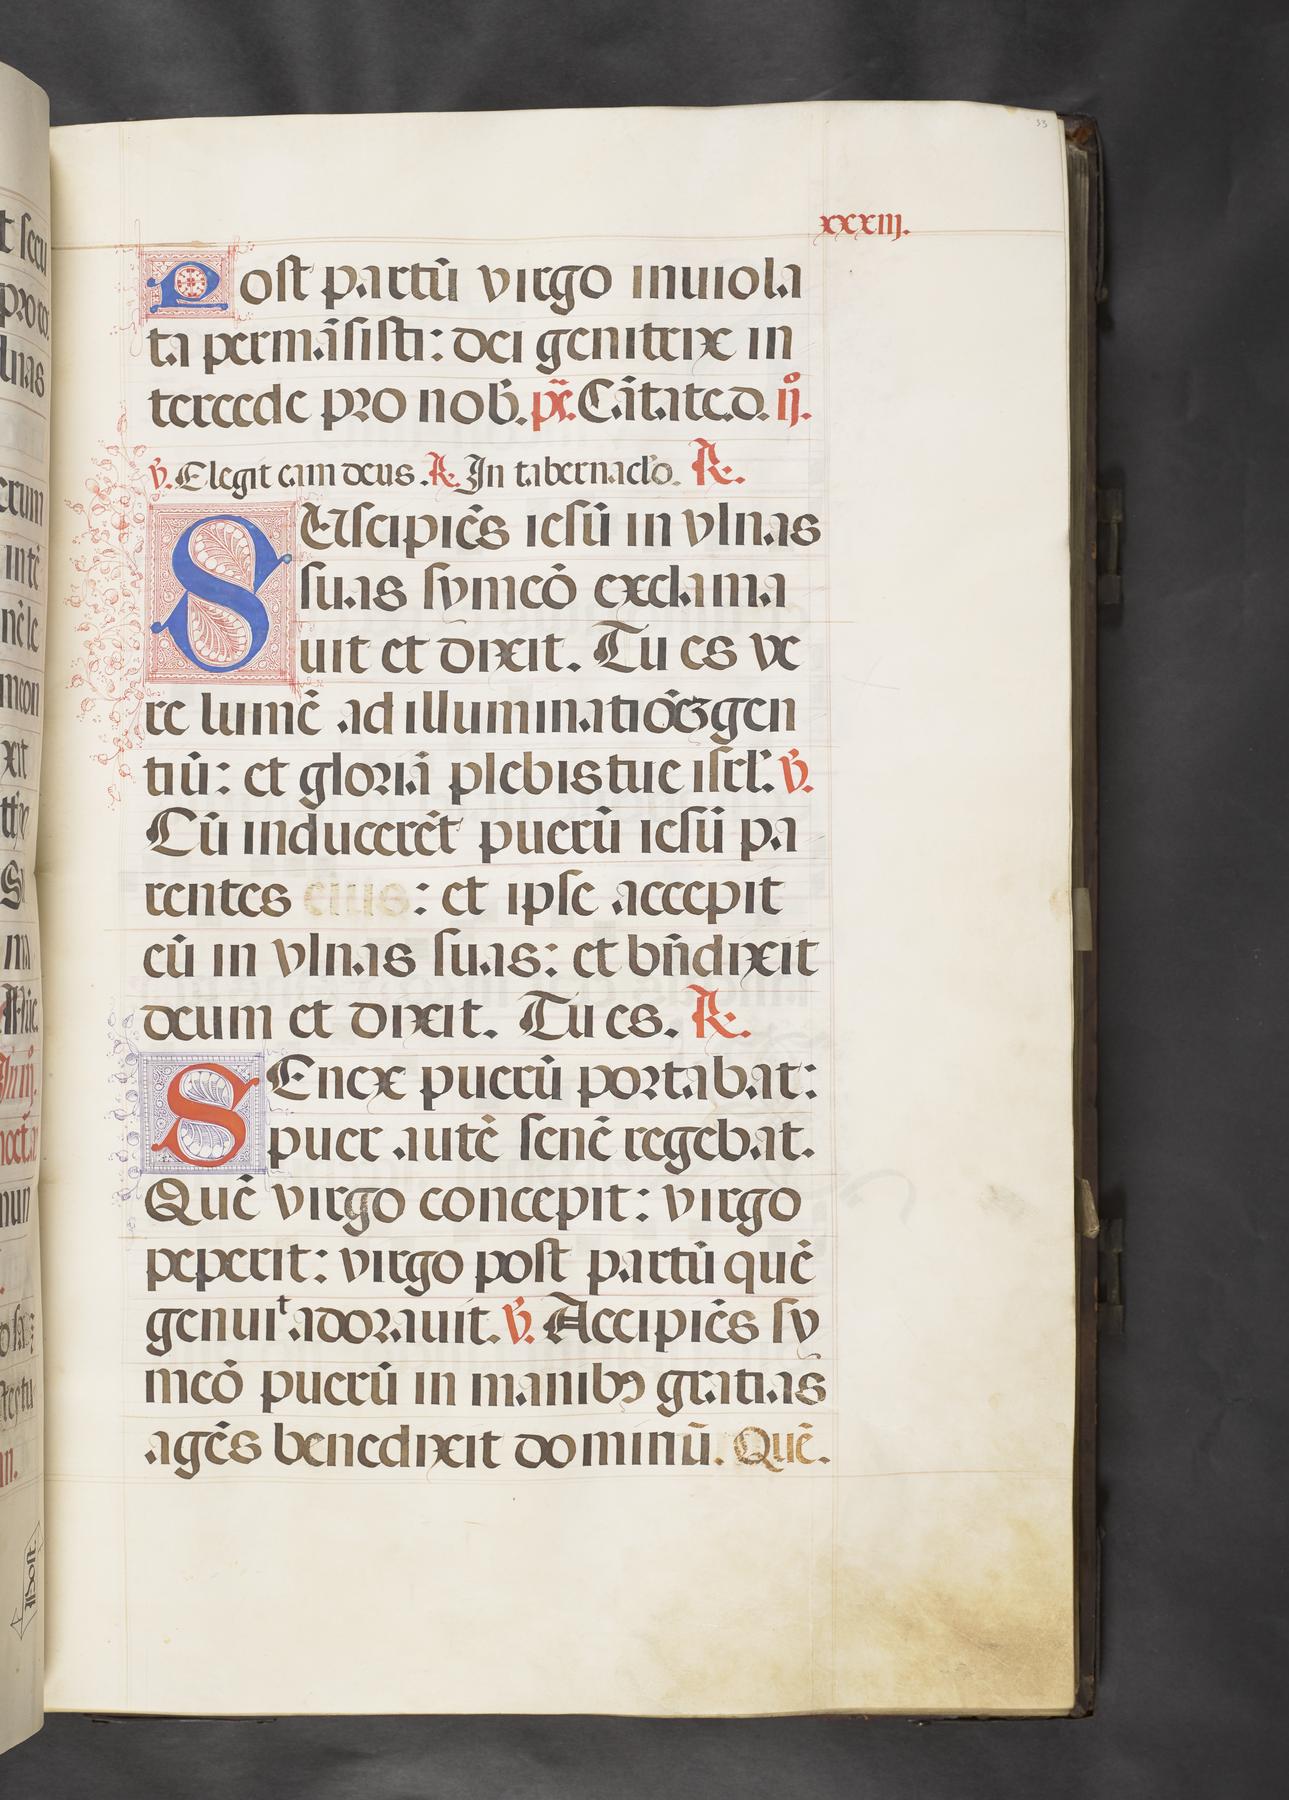 33
xxxiij.
Post partū virgo inuiola
ta permāsisti: dei genitrix in
tercede pro nob̄. p̄s. Cātate.d. ij.
℣. Elegit eam deus. ℟. In tabernaclo. ℟.
SUscipiēs iesū in vlnas
suas symeō exclama
uit et dixit. Tu es ve
re lumē ad illuminatiōēʒ gen
tiū: et gloriā plebis tue isrl'. ℣.
Cū inducerēt puerū iesū pa
rentes eius: et ipse accepit
eū in vlnas suas: et bn̄dixit
deum et dixit. Tu es. ℟.
SEnex puerū portabat:
puer autē senē regebat.
Quē virgo concepit: virgo
peperit: virgo post partū quē
genuit adorauit. ℣. Accipiēs sy
meō puerū in manibꝰ gratias
agēs benedixit dominū. Quē.